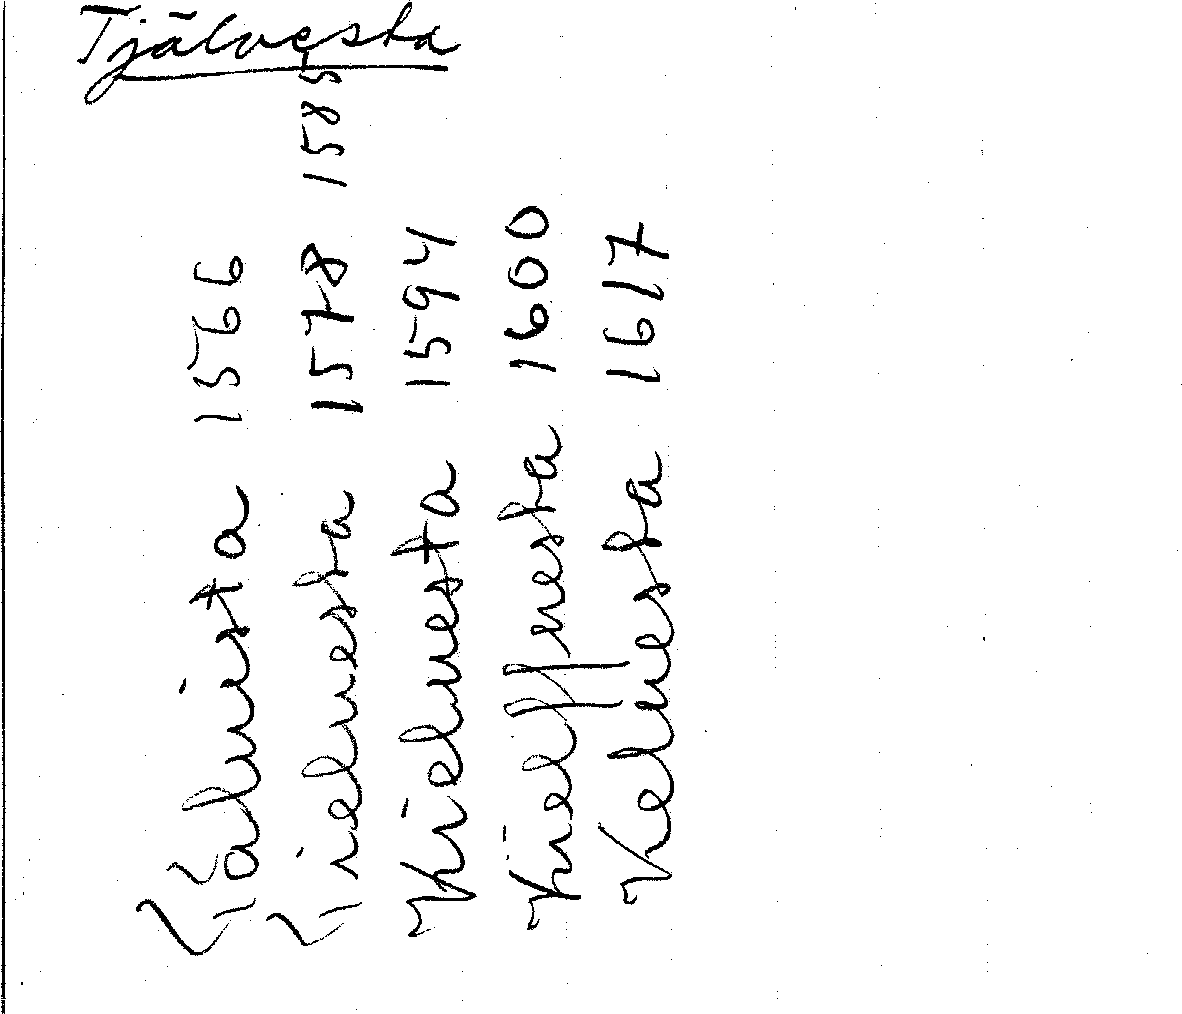 Tjälvesta
1566
Kieluesta 1578 1585
Kieluesta 1594
Kielffuesta 1600
Keluesta 1617